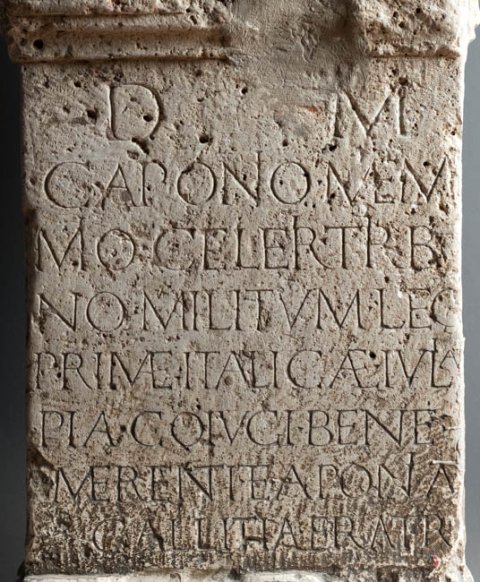 D M
C APONO·MEM
MO·CELERI TRIBV
NO·MILITVM·LEG
PRIMÆ·ITALICÆ·IVLIA
PIA·COIVGI·BENE
MERENTI·E·APONIA
GALLITTA·FRATRI